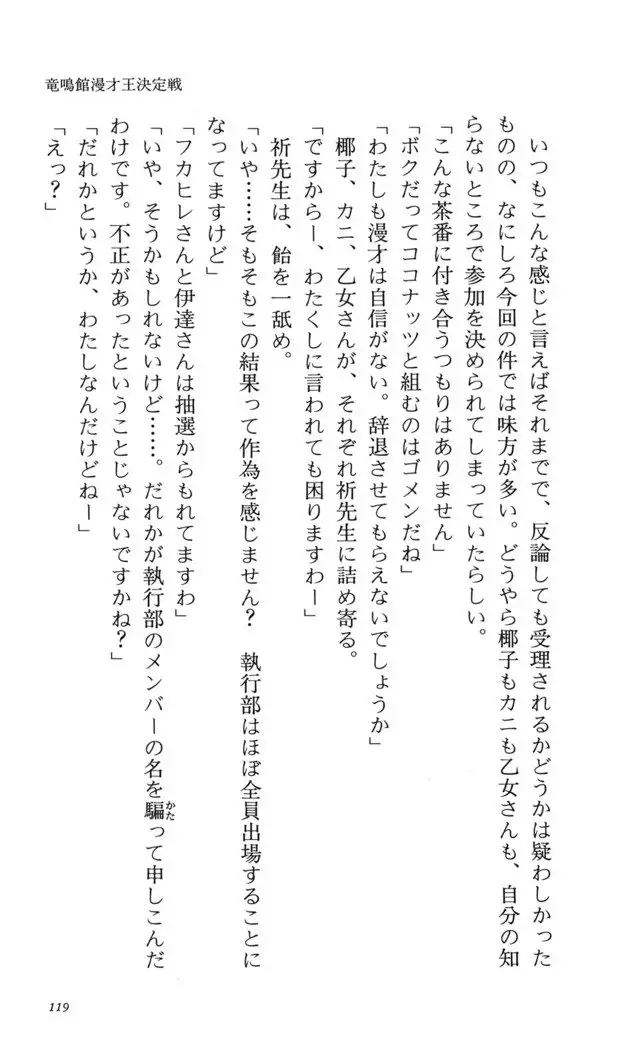 竜鳴館漫才王決定戦
　いつもこんな感じと言えばそれまでで、反論しても受理されるかどうかは疑わしかった
ものの、なにしろ今回の件では味方が多い。どうやら椰子もカニも乙女さんも、自分の知
らないところで参加を決められてしまっていたらしい。
「こんな茶番に付き合うつもりはありません」
「ボクだってココナッツと組むのはゴメンだね」
「わたしも漫才は自信がない。辞退させてもらえないでしょうか」
　椰子、カニ、乙女さんが、それぞれ祈先生に詰め寄る。
「ですからー、わたくしに言われても困りますわー」
　祈先生は、飴を一舐め。
「いや……そもそもこの結果って作為を感じません？　執行部はほぼ全員出場することに
なってますけど」
「フカヒレさんと伊達さんは抽選からもれてますわ」
「いや、そうかもしれないけど……。だれかが執行部のメンバーの名を騙かたって申しこんだ
わけです。不正があったということじゃないですかね？」
「だれかというか、わたしなんだけどねー」
「えっ？」
119